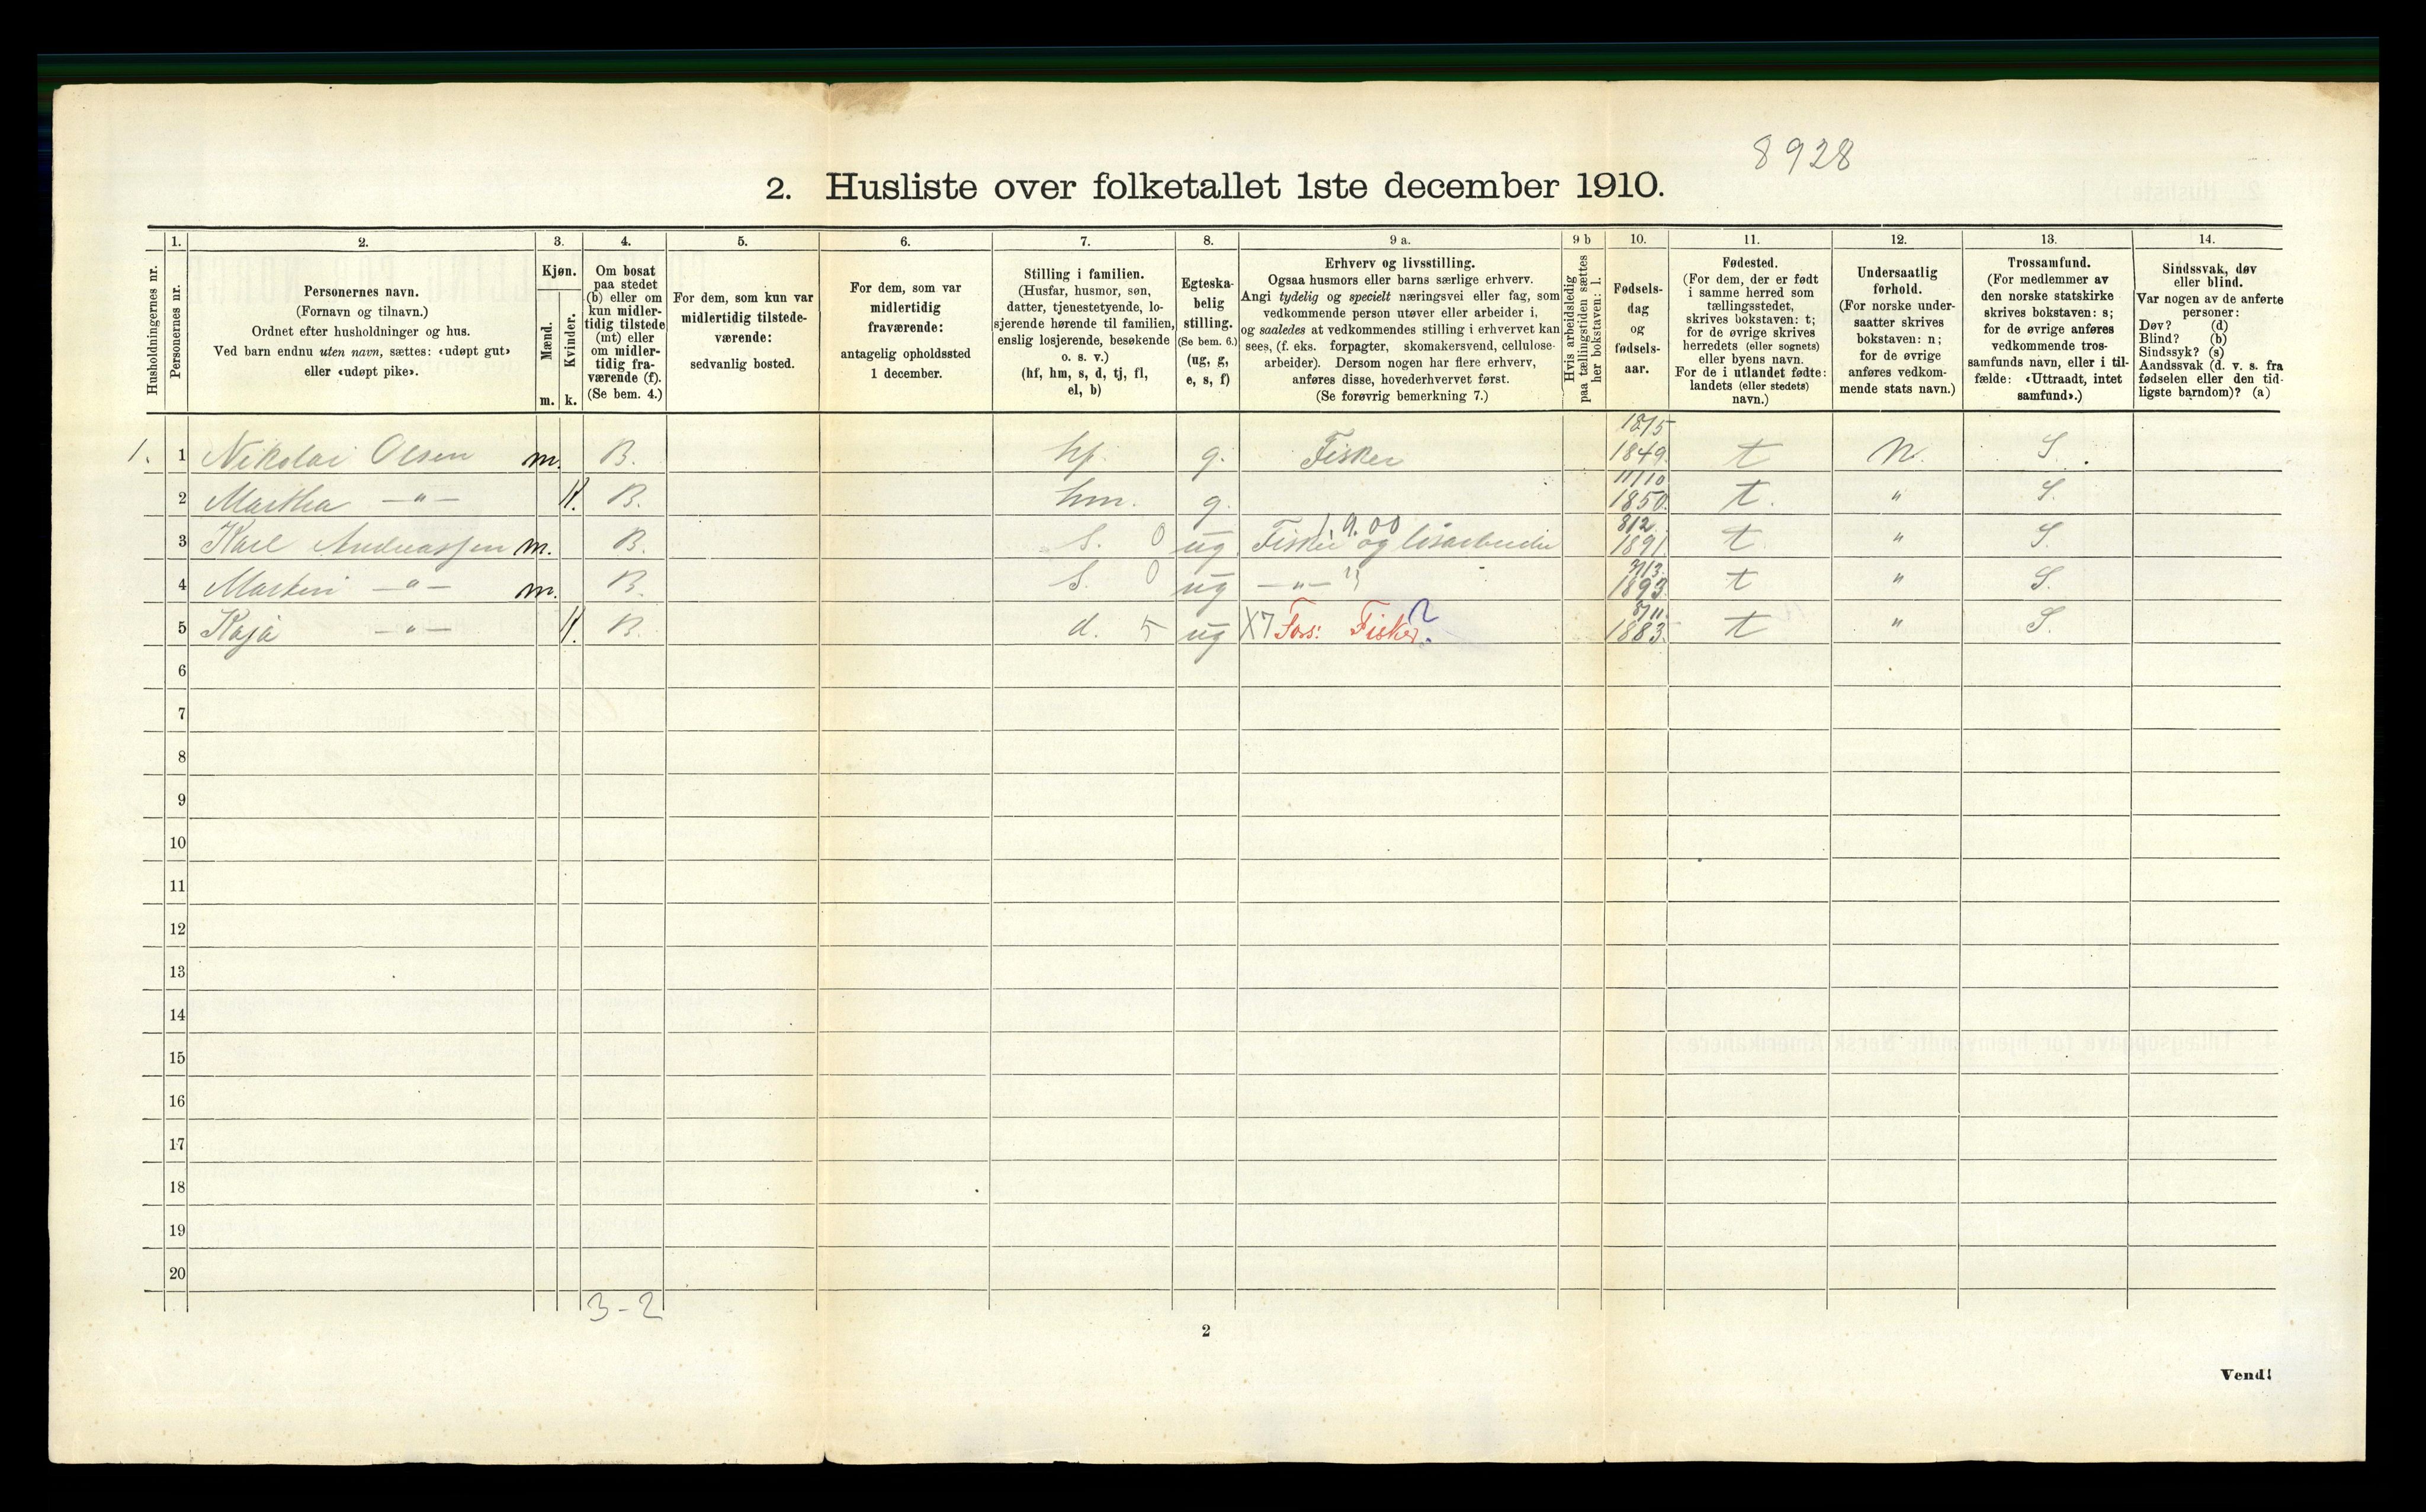 8928
2. Husliste over folketallet 1ste december 1910.
Husholdningernes nr.
1. Personernes nr.
2. Personernes navn.
(Fornavn og tilnavn.)
Ordnet efter husholdninger og hus.
Ved barn endnu uten navn, sættes: «udøpt gut»
eller «udøpt pike».
3. Kjøn.
Mænd. m.
Kvinder. k.
4. Om bosat
paa stedet
(b) eller om
kun midler-
tidig tilstede
(mt) eller
om midler-
tidig fra-
værende (f).
(Se bem. 4.)
5. For dem, som kun var
midlertidig tilstede-
værende:
sedvanlig bosted.
6. For dem, som var
midlertidig
fraværende:
antagelig opholdssted
1 december.
7. Stilling i familien.
(Husfar, husmor, søn,
datter, tjenestetyende, lo-
sjerende hørende til familien,
enslig losjerende, besøkende
o. s. v.)
(hf, hm, s, d, tj, fl,
el, b)
8. Egteska-
belig
stilling.
(Se bem. 6.)
(ug, g,
e, s, f)
9 a. Erhverv og livsstilling.
Ogsaa husmors eller barns særlige erhverv.
Angi tydelig og specielt næringsvei eller fag, som
vedkommende person utøver eller arbeider i,
og saaledes at vedkommendes stilling i erhvervet kan
sees, (f. eks. forpagter, skomakersvend, cellulose-
arbeider). Dersom nogen har flere erhverv,
anføres disse, hovederhvervet først.
(Se forøvrig bemerkning 7.)
9 b Hvis arbeidsledig
paa tællingstiden sættes
her bokstaven: l.
10. Fødsels-
dag
og
fødsels-
aar.
11. Fødested.
(For dem, der er født
i samme herred som
tællingsstedet,
skrives bokstaven: t;
for de øvrige skrives
herredets (eller sognets)
eller byens navn.
For de i utlandet fødte:
landets (eller stedets)
navn.)
12. Undersaatlig
forhold.
(For norske under-
saatter skrives
bokstaven: n;
for de øvrige
anføres vedkom-
mende stats navn.)
13. Trossamfund.
(For medlemmer av
den norske statskirke
skrives bokstaven: s;
for de øvrige anføres
vedkommende tros-
samfunds navn, eller i til-
fælde: «Uttraadt, intet
samfund».)
14. Sindssvak, døv
eller blind.
Var nogen av de anførte
personer:
Døv? (d)
Blind? (b)
Sindssyk? (s)
Aandssvak (d. v. s. fra
fødselen eller den tid-
ligste barndom)? (a)
1. 1 Nikolai Olsen m. B. hf. g. Fisker 18/5 1849. t n. S.
2 Martha —"— K. B. hm. g. 11/10 1850. t. " S.
3 Karl Andreassen m. B. S. 0 ug Fisker og 1891. t. " S.
4 —"— m. B. S. 0 ug —"— 1893. t " S.
5 Kaja —"— K. B. d. 5 ug X7 Fors: Fisker. 8/11. 1883. t " S.
6
7
8
9
10
11
12
13
14
15
16
17
18
19
20
3-2
2
Vend!